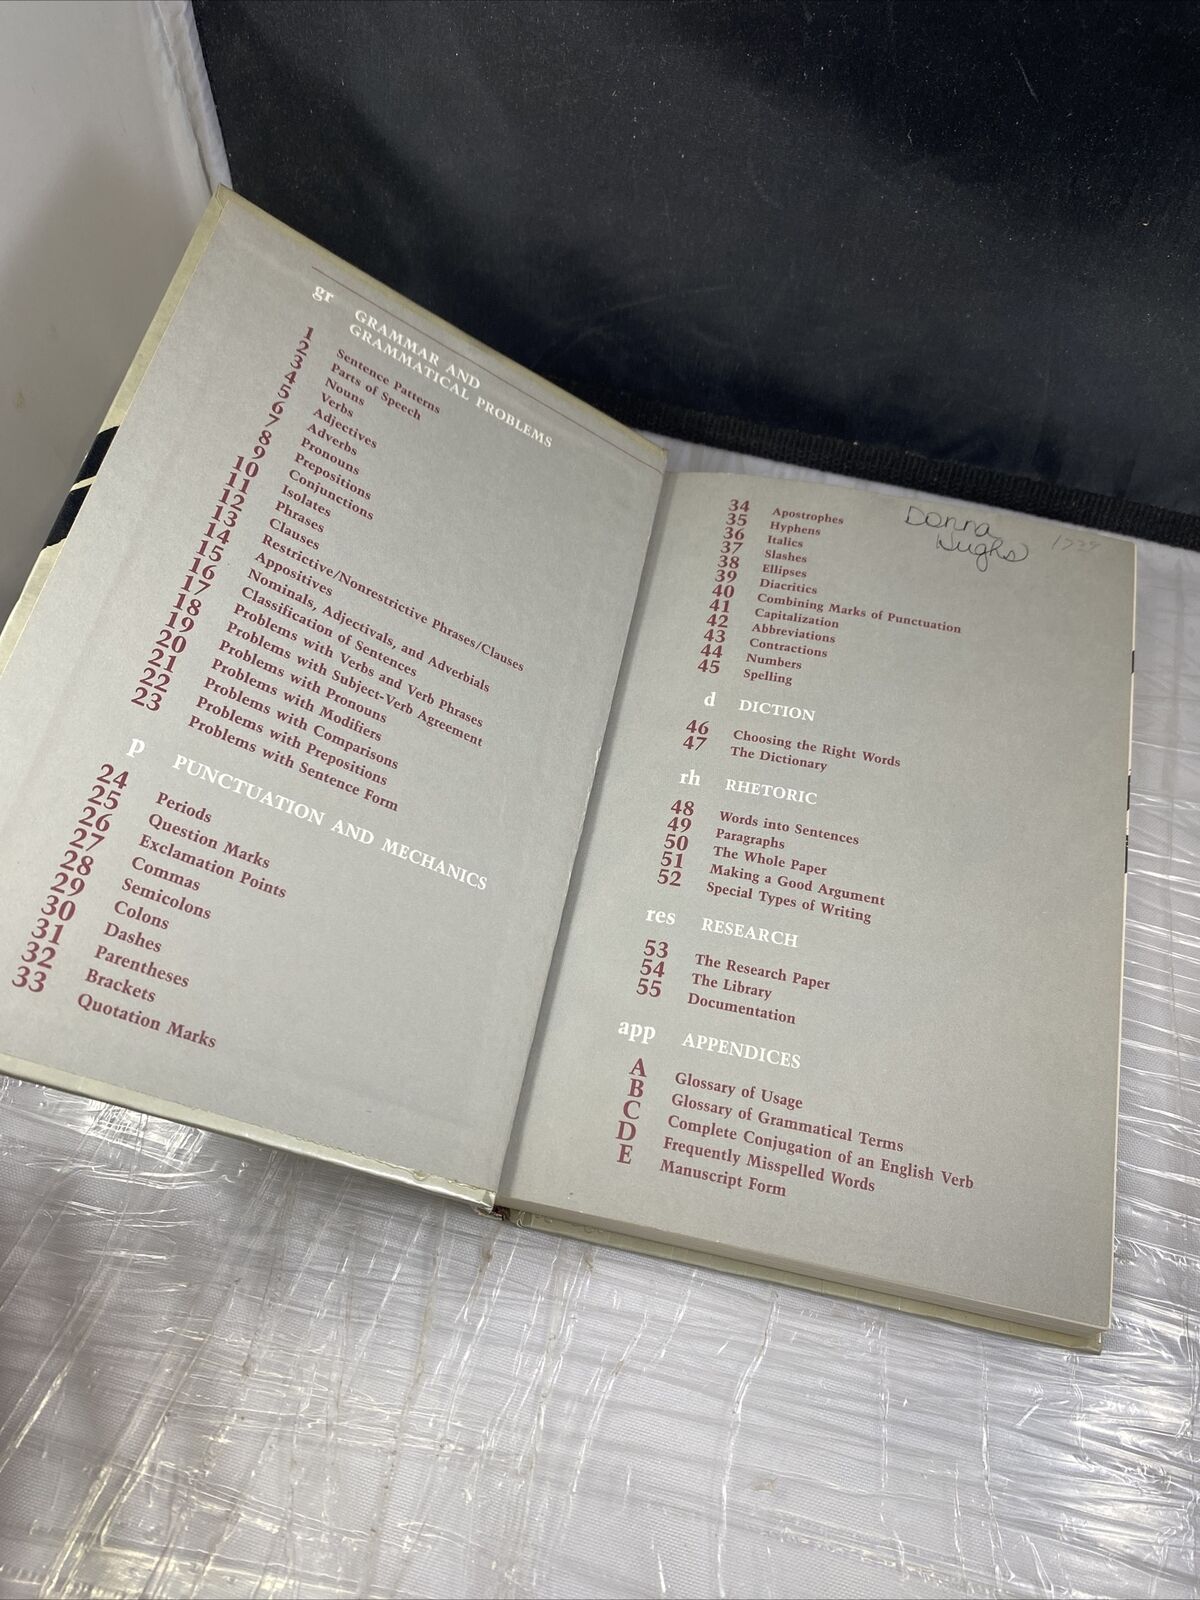 gr GRAMMAR AND
GRAMMATICAL PROBLEMS
1 Sentence Patterns
2 Parts of Speech
3 Nouns
4 Verbs
5 Adjectives
6 Adverbs
7 Pronouns
8 Prepositions
9 Conjunctions
10 Isolates
11 Phrases
12 Clauses
13 Restrictive/Nonrestrictive Phrases/Clauses
14 Appositives
15 Nominals, Adjectivals, and Adverbials
16 Classification of Sentences
17 Problems with Verbs and Verb Phrases
18 Problems with Subject-Verb Agreement
19 Problems with Pronouns
20 Problems with Modifiers
21 Problems with Comparisons
22 Problems with Prepositions
23 Problems with Sentence Form
p PUNCTUATION AND MECHANICS
24 Periods
25 Question Marks
26 Exclamation Points
27 Commas
28 Semicolons
29 Colons
30 Dashes
31 Parentheses
32 Brackets
33 Quotation Marks
34 Apostrophes
35 Hyphens
36 Italics
37 Slashes
38 Ellipses
39 Diacritics
40 Combining Marks of Punctuation
41 Capitalization
42 Abbreviations
43 Contractions
44 Numbers
45 Spelling
d DICTION
46 Choosing the Right Words
47 The Dictionary
rh RHETORIC
48 Words into Sentences
49 Paragraphs
50 The Whole Paper
51 Making a Good Argument
52 Special Types of Writing
res RESEARCH
53 The Research Paper
54 The Library
55 Documentation
app APPENDICES
A Glossary of Usage
B Glossary of Grammatical Terms
C Complete Conjugation of an English Verb
D Frequently Misspelled Words
E Manuscript Form
Donna
Hughs